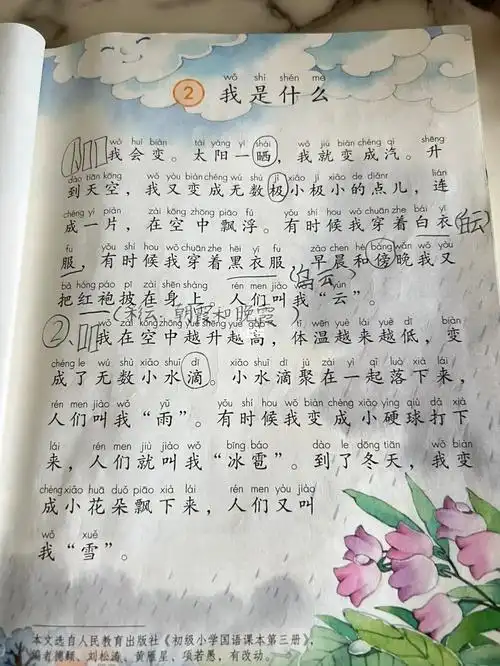 wǒ shì shén me
2 我是什么
wǒ huì biàn tài yáng yí shài wǒ jiù biàn chéng qì shēng
我会变。太阳一晒，我就变成汽。升
dào tiān kōng wǒ yòu biàn chéng wú shù jí xiǎo jí xiǎo de diǎnr lián
到天空，我又变成无数极小极小的点儿，连
chéng yí piàn zài kōng zhōng piāo fú yǒu shí hou wǒ chuān zhe bái yī
成一片，在空中飘浮。有时候我穿着白衣(白云)
fú yǒu shí hou wǒ chuān zhe hēi yī fu zǎo chen hé bàng wǎn wǒ yòu
服，有时候我穿着黑衣服，早晨和傍晚我又
(乌云)
bǎ hóng páo pī zài shēn shàng rén men jiào wǒ yún
把红袍披在身上，人们叫我“云”。
(彩云：朝霞和晚霞)
wǒ zài kōng zhōng yuè shēng yuè gāo tǐ wēn yuè lái yuè dī biàn
②、我在空中越升越高，体温越来越低，变
chéng le wú shù xiǎo shuǐ dī xiǎo shuǐ dī jù zài yì qǐ luò xià lái
成了无数小水滴。小水滴聚在一起落下来，
rén men jiào wǒ yǔ yǒu shí hou wǒ biàn chéng xiǎo yìng qiú dǎ xià
人们叫我“雨”。有时候我变成小硬球打下
lái rén men jiù jiào wǒ bīng báo dào le dōng tiān wǒ biàn
来，人们就叫我“冰雹”。到了冬天，我变
chéng xiǎo huā duǒ piāo xià lái rén men yòu jiào
成小花朵飘下来，人们又叫
wǒ xuě
我“雪”。
本文选自人民教育出版社《初级小学国语课本第三册》，
编者德颖、刘松涛、黄雁星、项若愚，有改动。